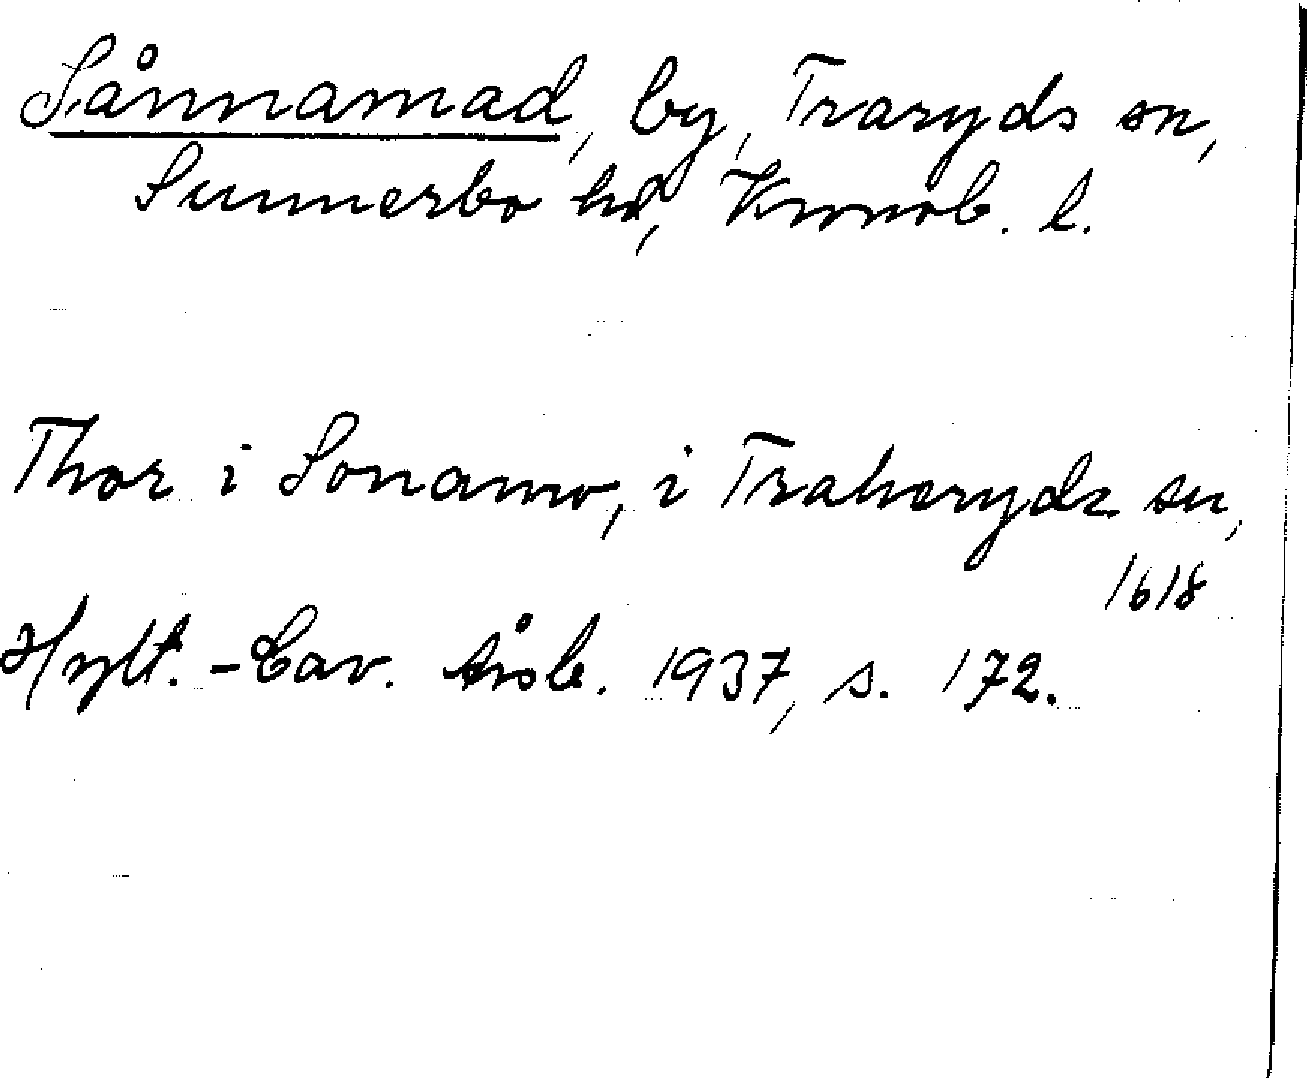 Sånnamad, by, Traryds sn,
Sunnerbo hd, Kronob. l.
Thor i Sonamo, i Traheryds sn,
1618
Hylt.-Cav. årsb. 1937, s. 172.